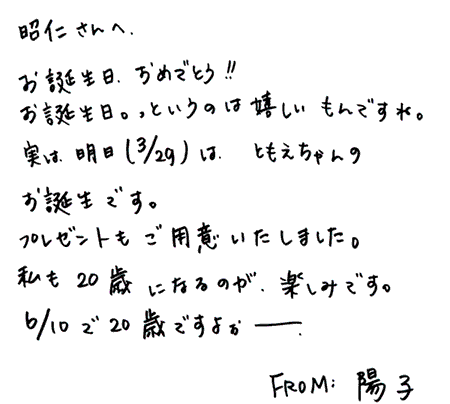 昭仁さんへ.
お誕生日.おめでとう!!
お誕生日。,というのは嬉しいもんですね。
実は.明日(3/29)は.ともえちゃんの
お誕生です。
プレゼントもご用意いたしました。
私も20歳になるのが.楽しみです。
6/10で20歳ですよおー.
FROM:陽子